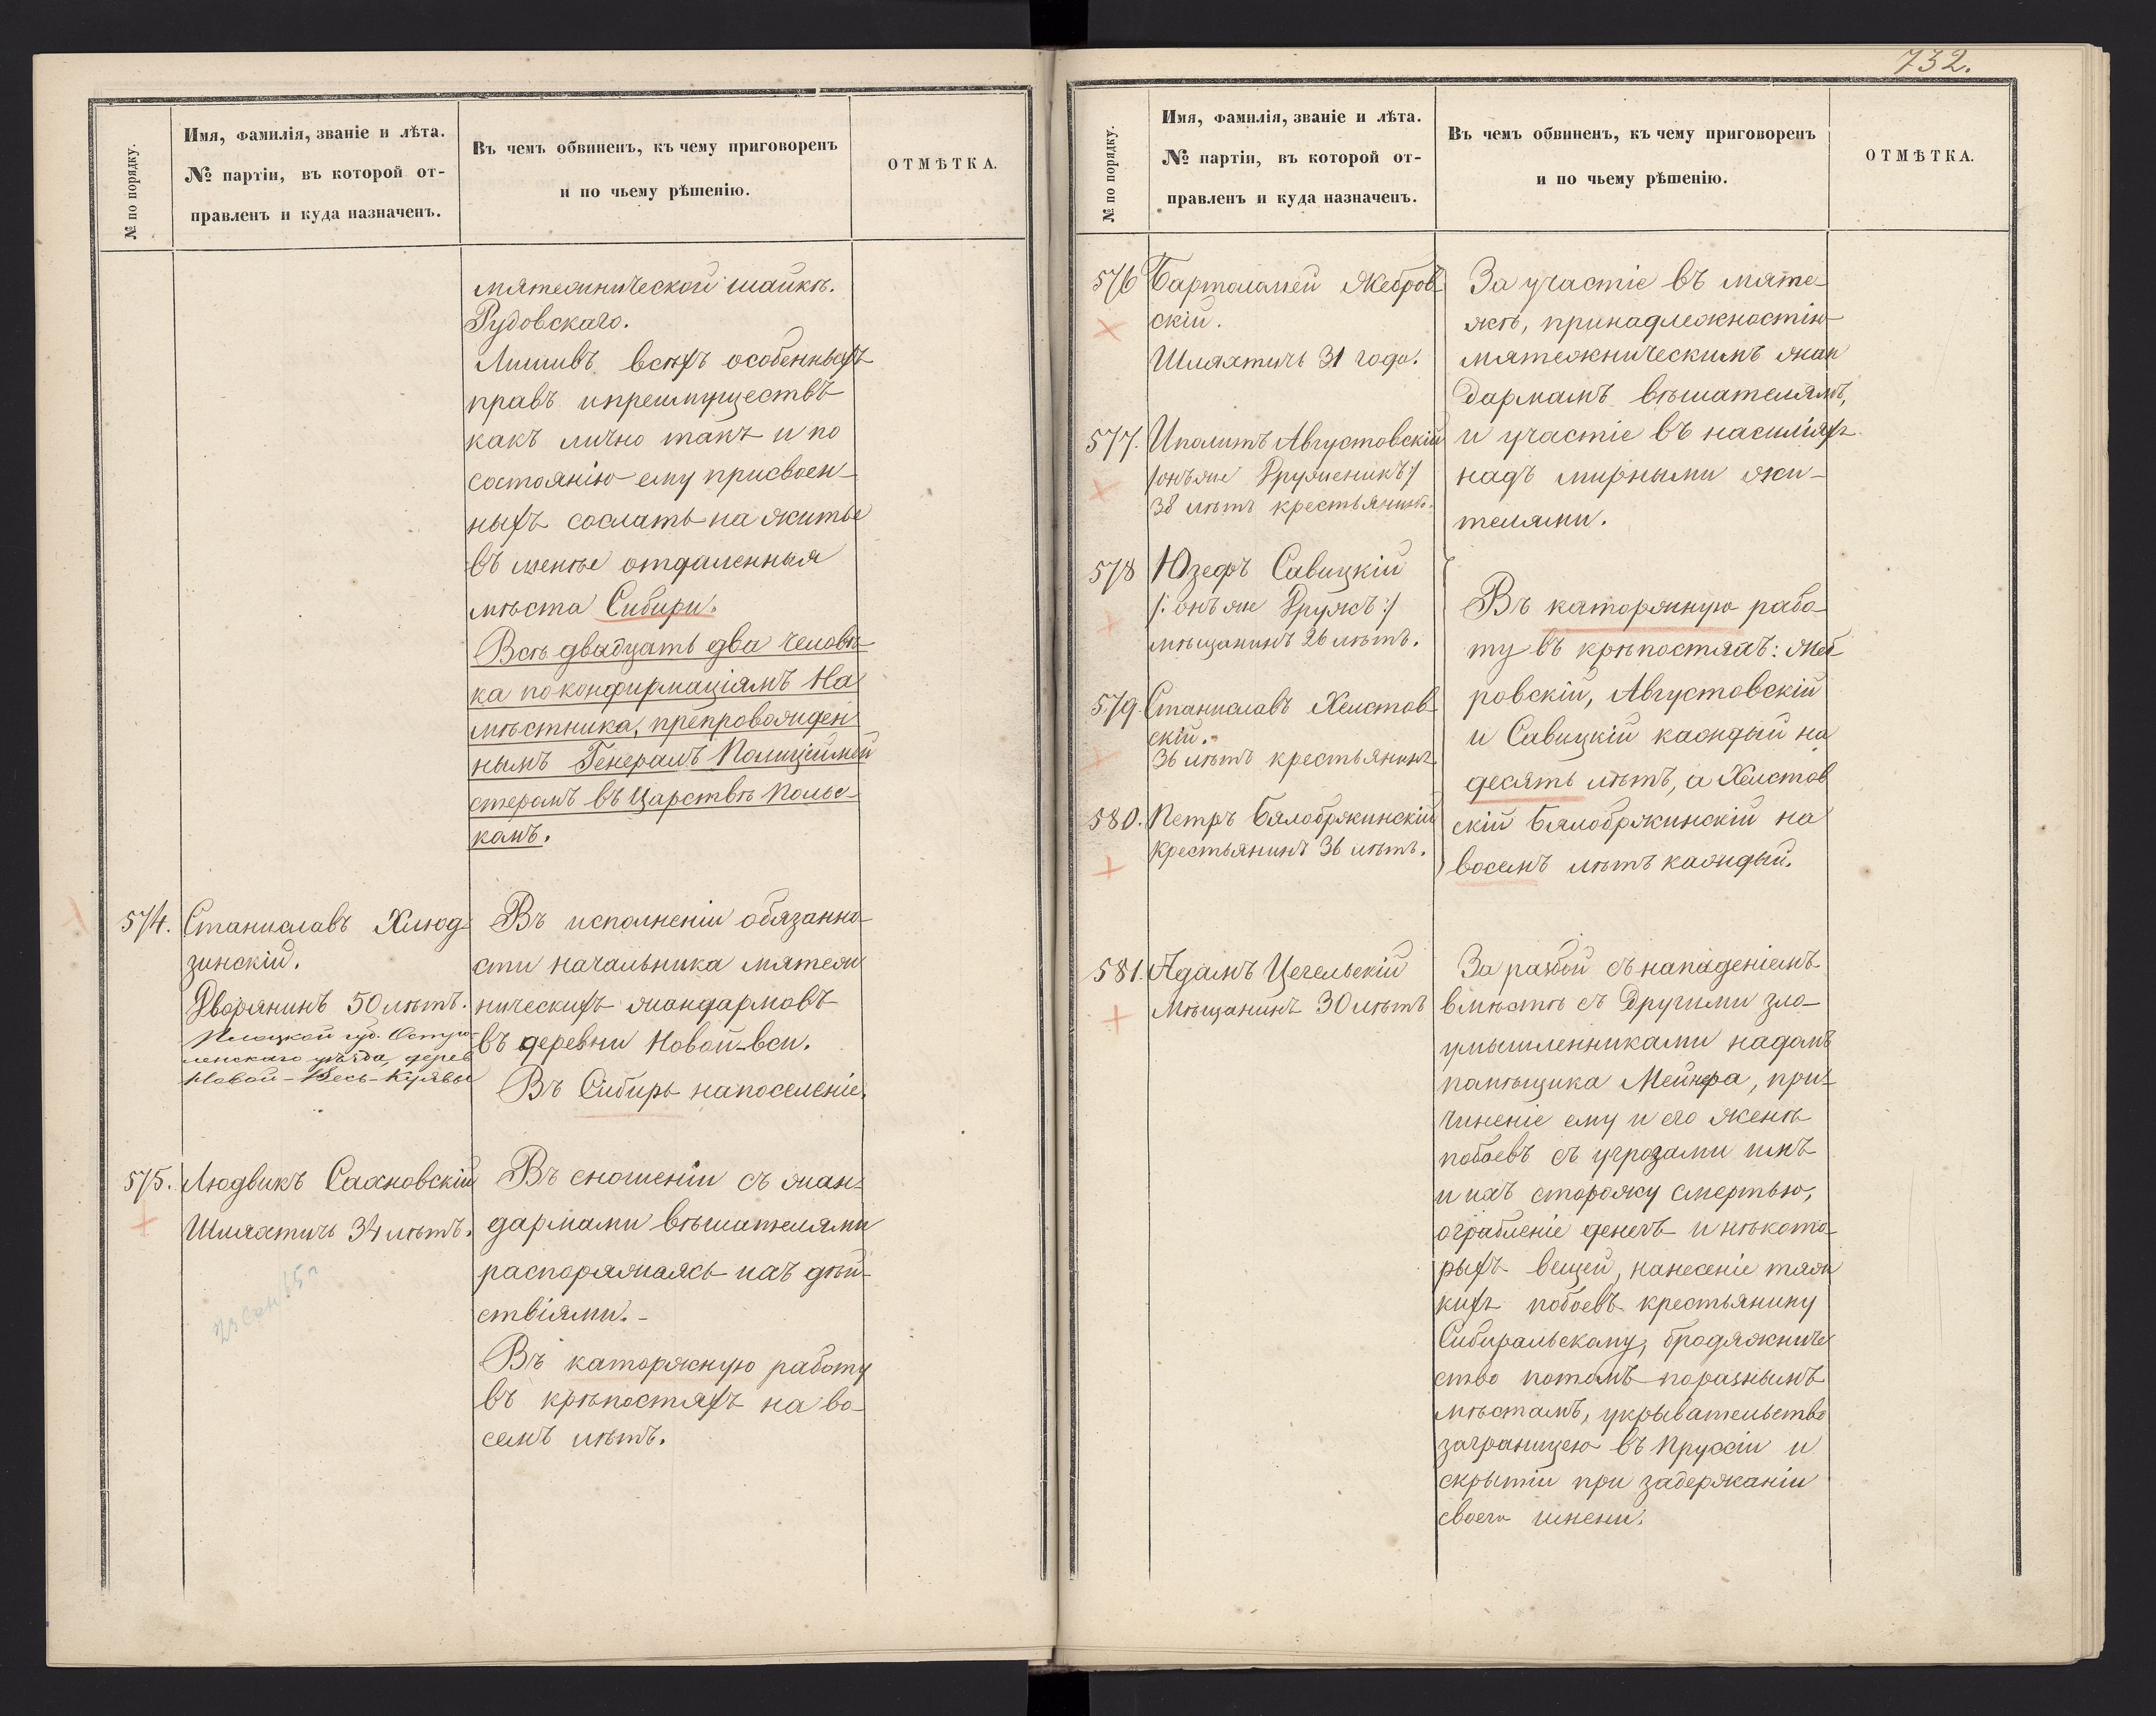 № по порядку.
Имя, фамилія, званіе и лѣта.
№ партіи, въ которой от-
правленъ и куда назначенъ.
Въ чемъ обвиненъ, къ чему приговоренъ
и по чьему рѣшенію.
ОТМѢТКА.
мятежнической шайкѣ.
Рудовскаго.
Лишивъ всѣхъ особенныхъ
правъ и преимуществъ
какъ лично такъ и по
состоянію ему присвоен-
ныхъ сослать на житье
въ менѣе отдаленныя
мѣста Сибири.
Всѣ двадцать два человѣ-
ка по конфирмаціямъ На
мѣстника, препровожден
нымъ Генералъ Полиціймей
стеромъ въ Царствѣ Польс-
комъ.
574. Станиславъ Хлюд-
зинскій.
Дворянинъ 50 лѣтъ.
Плоцкой губ. Остро-
ленскаго уѣзда, дерев
Новой-Весь-Куявы
Въ исполненіи обязанно-
сти начальника мятеж
ническихъ жандармовъ
въ деревни Новой-вси.
Въ Сибирь на поселеніе.
575. Людвикъ Сахновскій
Шляхтичъ 34 лѣтъ.
Въ сношеніи съ жан-
дармами вѣшателями
распоряжаясь ихъ дѣй-
ствіями.-
Въ каторжную работу
въ крѣпостяхъ на во-
семъ лѣтъ.
732.
№ по порядку.
Имя, фамилія, званіе и лѣта.
№ партіи, въ которой от-
правленъ и куда назначенъ.
Въ чемъ обвиненъ, къ чему приговоренъ
и по чьему рѣшенію.
ОТМѢТКА.
576 Бартоломей Жебров-
скій.
Шляхтичъ 31 года.
577. Иполитъ Августовскій
/онъ же Друженикъ:/
38 лѣтъ крестьянинъ.
578 Юзефъ Савицкій
/: онъ же Дружсъ:/
мѣщанинъ 26 лѣтъ.
579. Станиславъ Хелстов-
скій.
36 лѣтъ крестьянинъ
580. Петръ Бялобржкинскій
крестьянинъ 36 лѣтъ.
За участіе въ мяте-
жѣ, принадлежностію
мятежническимъ жан
дармамъ вѣшателямъ,
и участіе въ насиліяхъ
надъ мирными жи-
телями.
Въ каторжную рабо-
ту въ крѣпостяхъ: Жеб-
ровскій, Августовскій
и Савицкій каждый на
десять лѣтъ, а Хелстов
скій Бялобржкинскій на
восемъ лѣтъ каждый.
581. Адамъ Цегельскій
Мѣщанинъ 30 лѣтъ
За разбой съ нападеніемъ
вмѣстѣ съ другими зло-
умышленниками на домъ
помѣщика Мейнера, при-
чиненіе ему и его женѣ
побоевъ съ угрозами имъ
и ихъ сторожу смертью,
ограбленіе денегъ и нѣкото-
рыхъ вещей, нанесеніе тяж
кихъ побоевъ крестьянину
Сибиральскому, бродяжниче
ство потомъ по разнымъ
мѣстамъ, укрывательство
заграницею въ Пруссіи и
скрытіи при задержаніи
своего имени.